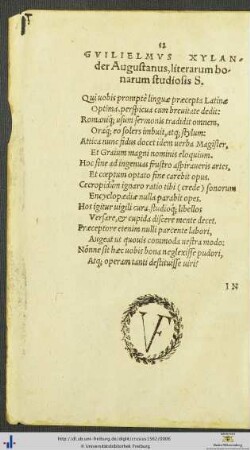 12
GVILIELMVS XYLAN-
der Augustanus, literarum bo-
narum studiosis S.
Qui uobis promptè linguæ præcepta Latinæ
Optima, perspicua cum breuitate dedit:
Romaniq; usum sermonis tradidit omnem,
Oraq; ro solers imbuit, atq; stylum:
Attica nunc fidus docet idem uerba Magister,
Et Graium magni nominis eloquium.
Hoc sine ad ingenuas frustra aspiraueris artes,
Et cœptum optato fine carebit opus.
Cecropidûm ignaro ratio tibi (crede) sonorum
Encyclopediæ nulla parabit opes.
Hos igitur uigili cura, studioq; libellos
Versare, & cupida discere mente decet.
Præceptore etenim nulli parcente labori,
Augeat ut quouis commoda uestra modo:
Nónne sit hæc uobis bona neglexisse pudori,
Atq; operam tanti destituisse uiri?
IN
VF
© Universitätsbibliothek Freiburg